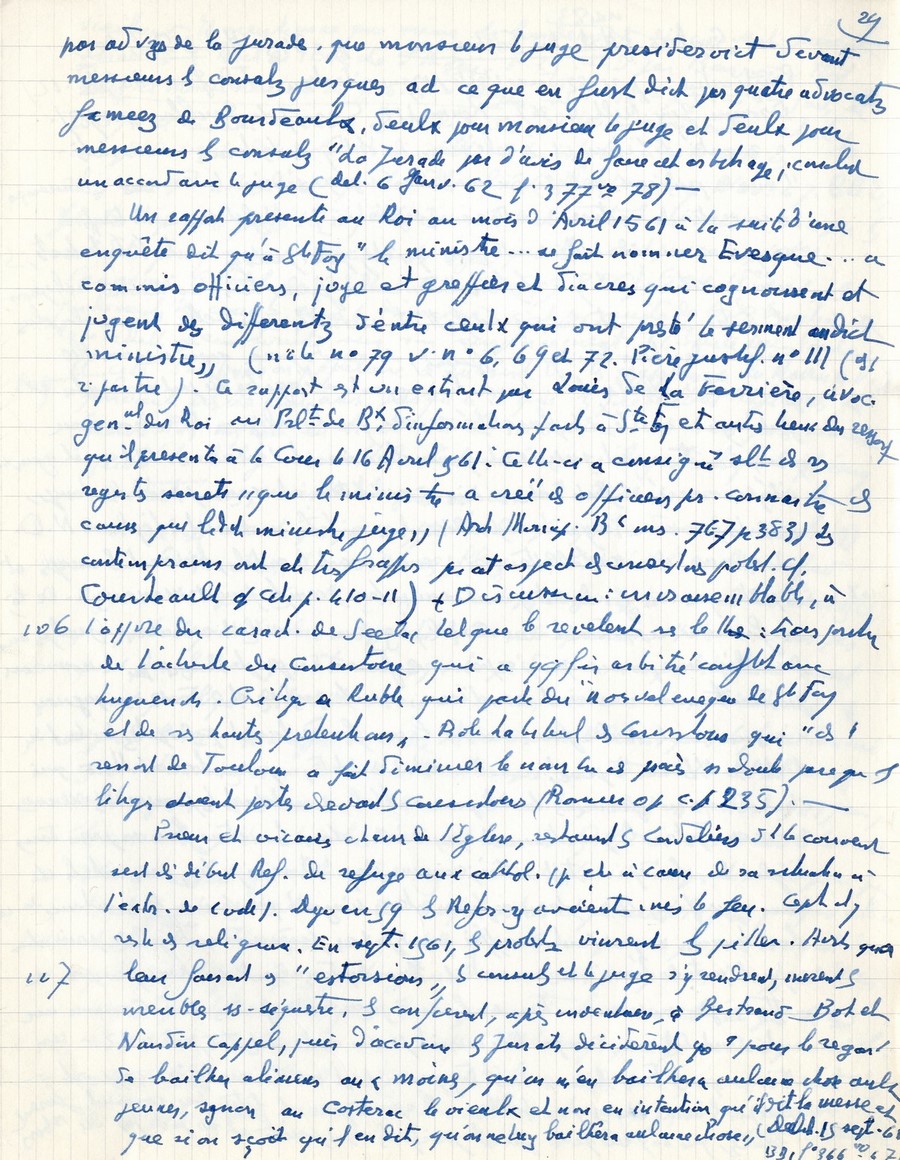 29
par advys de la jurade. que monsieur le juge presideroict devant
messieurs les consulz jusques ad ce que en fust dict par quatre advocatz
fameez de Bourdeaulx, deulx pour monsieur le juge et deulx pour
messieurs les consulz "La Jurade par d'avis de faire cet arbitrage, conclut
un accord avec le juge (del. 6 Janv. 62 f. 377 vo 78) —
Un rapport présenté au Roi au mois d'Avril 1561 à la suite d'une
enquête dit qu'à Ste Foy "le ministre ... se fait nommer Evesque ... a
commis officiers, juge et greffier et diacres qui cognoissent et
jugent des differentz d'entre ceulx qui ont presté le serment audict
ministre,, (note no 79 v. no 6, 69 et 72. Pièce justif. no III
partie). Ce rapport est un extrait par Louis de la Ferrière, avoc.
gen.al du Roi au Prlt de Bx, d'informations faites à Ste Foy et autres lieux du ressort
qu'il presenta à la Cour le 16 Avril 1561. Celle-ci a consigné slt ds ses
registres secrets "que le ministre a créé des officiers pr. connaître des
causes par ledit ministre jugé,, (Arch Municip. Bx ms. 767 p 383) des
contemporains ont été très frappés par cet aspect
Courteault op cit p. 410-11) + Discussion: invraisemblable, à
106 l'appui du caract. de tel que le revelent
de l'activité du Consistoire qui a qqfois arbitré conflit avec
huguenots. Critique de Ruble qui parle du "nouvel eveque de Ste Foy
et de ses hautes pretentions,, - Role habituel des Consistoires qui "ds le
ressort de Toulouse a fait diminuer le nombre des procès
litiges etaient portés devant les consistoires (Romier op c. p 235). —
Prieur et vicaires chassés de l'Eglise, restaient les Cordeliers dt le couvent
sert dès début Ref. de refuge aux cathol. (p etre à cause de sa situation à
l'extr. de la ville). Dejà en 59 les Refor-y avaient mis le feu. Cepdt il y
reste des religieux. En sept. 1561, les protests vinrent les piller. Alors que
107 leur faisant ses "estorsions,, les consuls et le juge s'y rendirent, mirent les
meubles ss-séquestre, les confierent, après inventaire, à Bertrand Bot et
Naudin Cappel, puis d'accord avec les Jurats décidèrent qe "pour le regard
de bailher alimens aux moines, qu'on n'en bailhera aulcune chose aulx
jeunes, synon au Costerac le vieulx et non en intention qu'il dit la messe et
que si on sçoit qu'il en dit, qu'on ne luy bailhera aulcune chose,, (Delib. 15 sept. 61
BB1 fo 366 vo 67